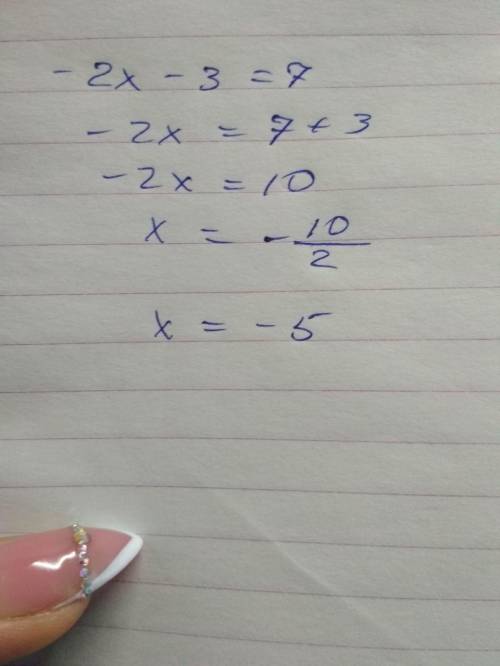 -2x - 3 = 7
-2x = 7 + 3
-2x = 10
x = -10/2
x = -5